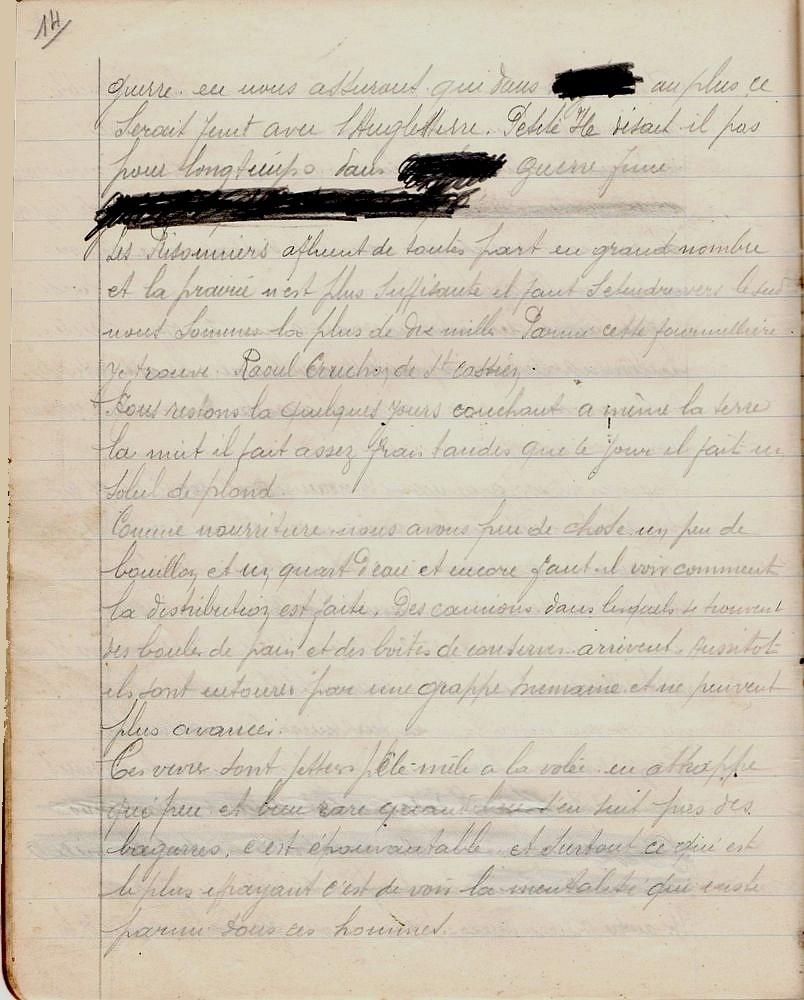 14
guerre. en nous assurant qui dans au plus ce
serait finit avec l'Angletterre. Petite Ile disait il pas
pour longtemps dans Guerre finie
Les Prisonniers afluent de toutes part en grand nombre
et la prairie n'est plus suffisante il faut s'etendre vers le sud
nous sommes la plus de dix mille. Parmi cette fourmilliere
je trouve Raoul de St Cassien.
Nous restons la quelques jours couchant a même la terre
la nuit il fait assez frais tandis que le jour il fait un
soleil de plond
Comme nourriture nous avons peu de chose un peu de
bouillon et un quart d'eau et encore faut-il voir comment
la distribution est faite. Des camions dans lesquels se trouvent
des boules de pain et des boites de conserves arrivent. Aussitot
ils sont entourer par une grappe humaine et ne peuvent
plus avancer.
Ces vivres sont jetters pèle-mèle a la volée en attrappe
qui peu et bien rare quant en suit pas des
bagarres, c'est épouvantable et surtout ce qui est
le plus éfrayant c'est de voir la mentalité qui existe
parmi tous ces hommes.